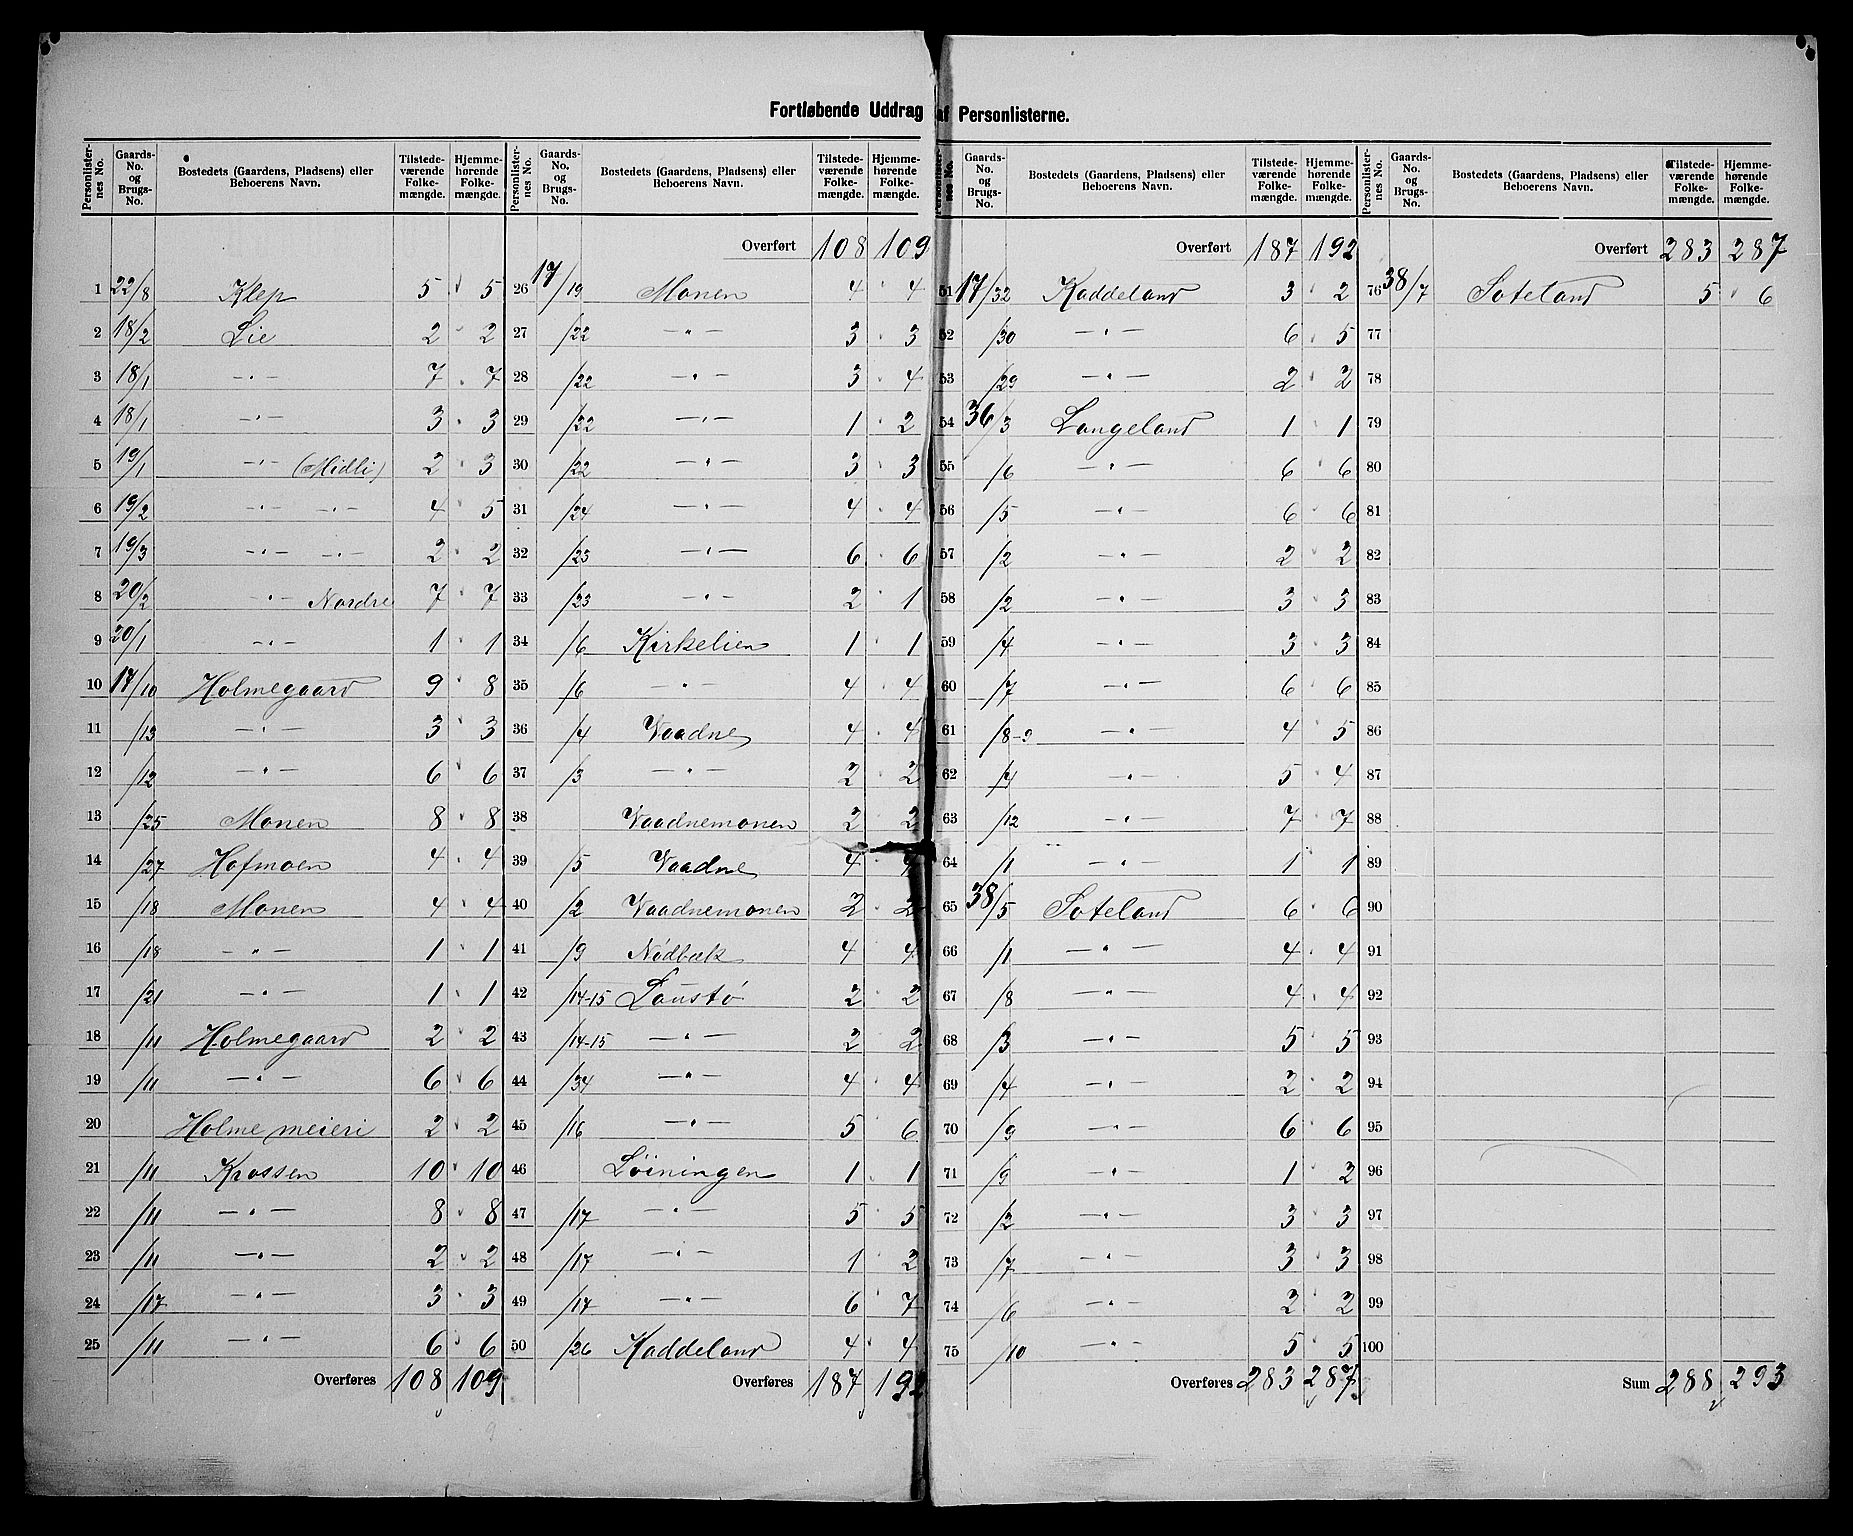 Fortløbende Uddrag af Personlisterne.
Personlister-nes No. Gaards-No. og Brugs-No. Bostedets (Gaardens, Pladsens) eller Beboerens Navn. Tilstede-værende Folke-mængde. Hjemme-hørende Folke-mængde.
1 22/8 Klep 5 5
2 18/2 Lie 2 2
3 18/1 —〃— 7 7
4 18/1 —〃— 3 3
5 19/1 —〃— (Midli) 2 3
6 19/2 —〃— —〃— 4 5
7 19/3 —〃— —〃— 2 2
8 20/2 —〃— Nordre 7 7
9 20/1 —〃— 1 1
10 17/10 Holmegaard 9 8
11 /13 —〃— 3 3
12 /12 —〃— 6 6
13 /25 Monen 8 8
14 /27 Hofmoen 4 4
15 /18 Monen 4 4
16 /18 —〃— 1 1
17 /21 —〃— 1 1
18 /11 Holmegaard 2 2
19 /11 —〃— 6 6
20 Holme meieri 2 2
21 /11 Krossen 10 10
22 /11 —〃— 8 8
23 /11 —〃— 2 2
24 /17 —〃— 3 3
25 /11 —〃— 6 6
Overføres 108 109
Personlister-nes No. Gaards-No. og Brugs-No. Bostedets (Gaardens, Pladsens) eller Beboerens Navn. Tilstede-værende Folke-mængde. Hjemme-hørende Folke-mængde.
Overført 108 109
26 17/19 Monen 4 4
27 /22 —〃— 3 3
28 /22 —〃— 3 4
29 /22 —〃— 1 2
30 /22 —〃— 3 3
31 /24 —〃— 4 4
32 /23 —〃— 6 6
33 /23 —〃— 2 1
34 /6 Kirkelien 1 1
35 /6 —〃— 4 4
36 /4 Vaadne 4 4
37 /3 —〃— 2 2
38 Vaadnemonen 2 2
39 /5 Vaadne 4 4
40 /2 Vaadnemonen 2 2
41 /9 Nødbæk 4 4
42 /14-15 Laustø 2 2
43 /14-15 —〃— 2 2
44 /34 —〃— 4 4
45 /16 —〃— 5 6
46 Løiningen 1 1
47 /17 —〃— 5 5
48 /17 —〃— 1 2
49 /17 —〃— 6 7
50 /26 Kaddeland 4 4
Overføres 187 192
Personlister-nes No. Gaards-No. og Brugs-No. Bostedets (Gaardens, Pladsens) eller Beboerens Navn. Tilstede-værende Folke-mængde. Hjemme-hørende Folke-mængde.
Overført 187 192
51 17/32 Kaddeland 3 2
52 /30 —〃— 6 5
53 /29 —〃— 2 2
54 36/3 Langeland 1 1
55 /6 —〃— 6 6
56 /5 —〃— 6 6
57 /2 —〃— 2 2
58 /2 —〃— 3 3
59 /4 —〃— 3 3
60 /7 —〃— 6 6
61 /8-9 —〃— 4 5
62 /4 —〃— 5 4
63 /12 —〃— 7 7
64 /1 —〃— 1 1
65 38/5 Soteland 6 6
66 /1 —〃— 4 4
67 /8 —〃— 4 4
68 /3 —〃— 5 5
69 /4 —〃— 2 2
70 /9 —〃— 6 6
71 /9 —〃— 1 2
72 /2 —〃— 3 3
73 /7 —〃— 3 3
74 /6 —〃— 2 2
75 /10 —〃— 5 5
Overføres 283 287
Personlister-nes No. Gaards-No. og Brugs-No. Bostedets (Gaardens, Pladsens) eller Beboerens Navn. Tilstede-værende Folke-mængde. Hjemme-hørende Folke-mængde.
Overført 283 287
76 38/7 Soteland 5 6
77
78
79
80
81
82
83
84
85
86
87
88
89
90
91
92
93
94
95
96
97
98
99
100
Sum 288 293